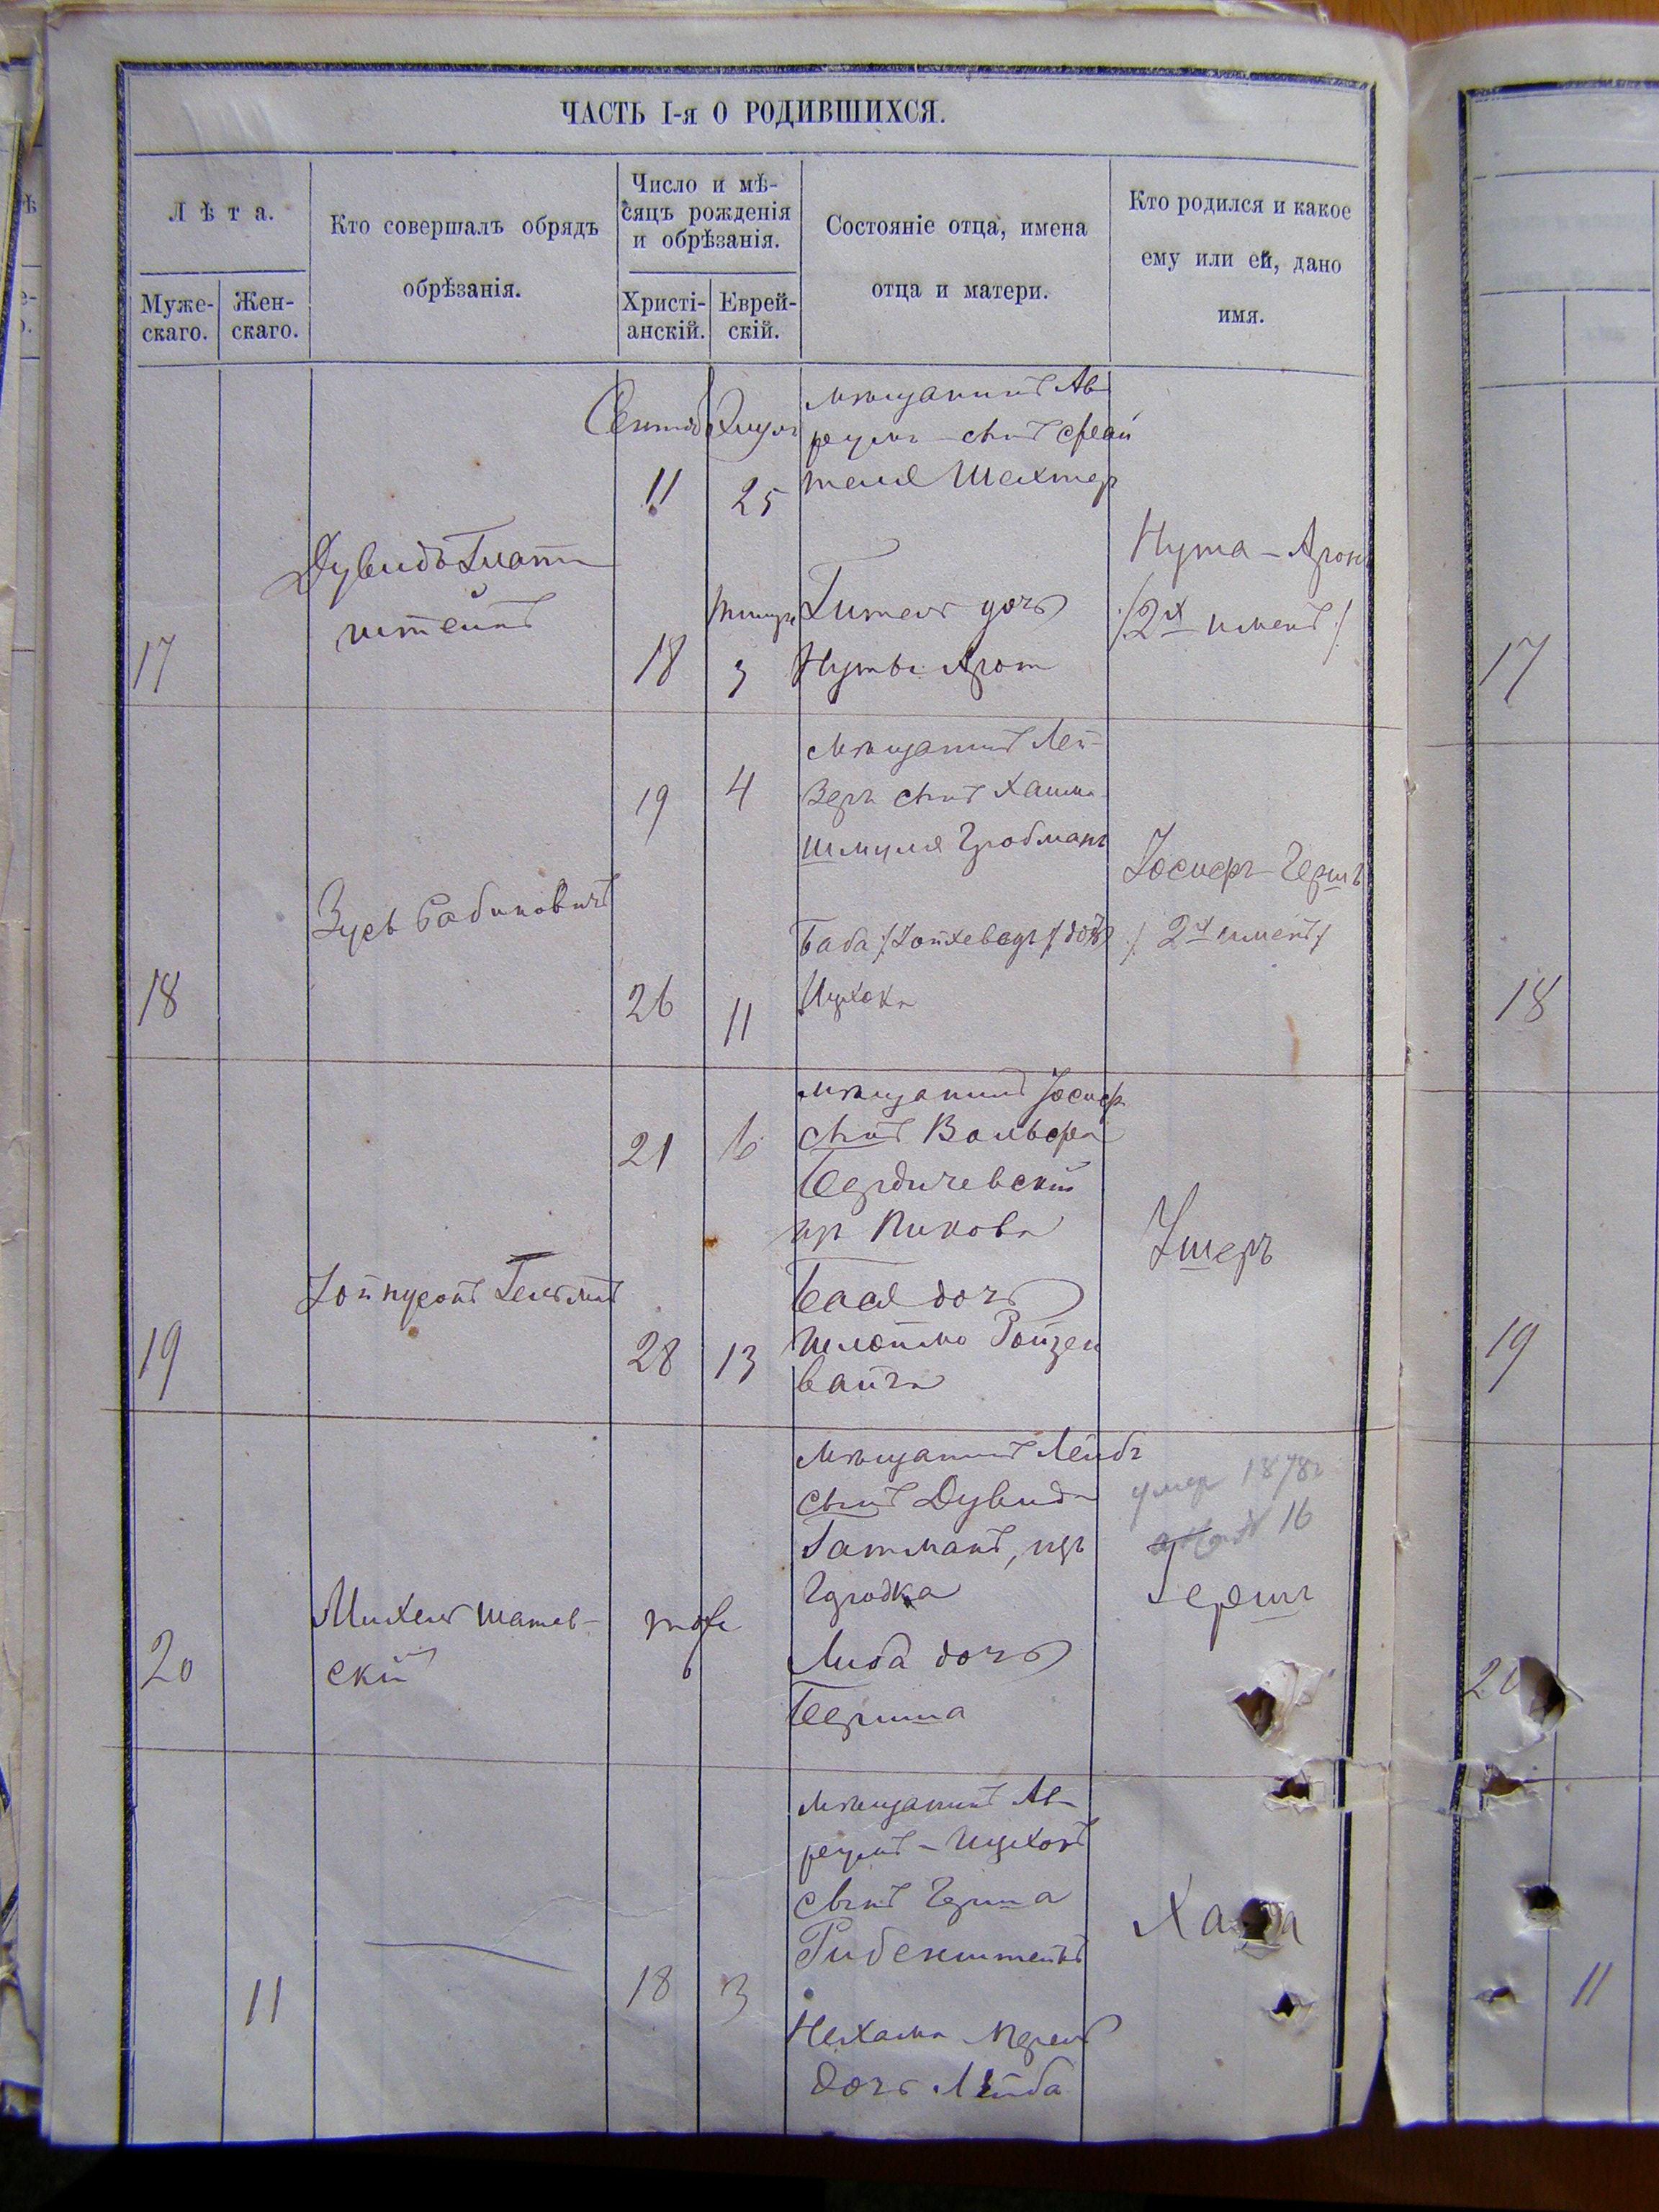 ЧАСТЬ I-я О РОДИВШИХСЯ.
Лѣта.
Муже-
скаго.
Жен-
скаго.
Кто совершалъ обрядъ
обрѣзанія.
Число и мѣ-
сяцъ рожденія
и обрѣзанія.
Христі-
анскій.
Еврей-
скій.
Состояніе отца, имена
отца и матери.
Кто родился и какое
ему или ей, дано
имя.
17
Дувидъ Глат
штейнъ
11
25
18
3
мѣщанинъ Ав
румъ сынъ
Шехтер
Гитель дочь
Нуты Арон
Нута-Арон
/2х именъ/
17
18
Зусь Рабиновичъ
19
4
26
11
Мѣщанинъ Лей
зеръ сынъ Хаима
Шмуля Гробманъ
Баба /Іойхеведъ/ дочь
Ицхока
Іосифъ Гершъ
/2х именъ/
18
19
21
6
28
13
мѣщанинъ Іосиф
сынъ Вольфа
Бердичевскій
из Пикова
Бася дочь
Шлоймо Ройзен
вайга
Ушеръ
19
20
Михель Шатав-
скій
Мѣщанинъ Лейбъ
сынъ Дувида
Гатманъ, изъ
Городка
Либа дочь
Берша
умер 1878г
16
Гершъ
20
11
18
3
Мѣщанинъ Ав-
румъ-Ицхокъ
сынъ Герша
Рибенштейнъ
Нехама Перель
дочь Лейба
11